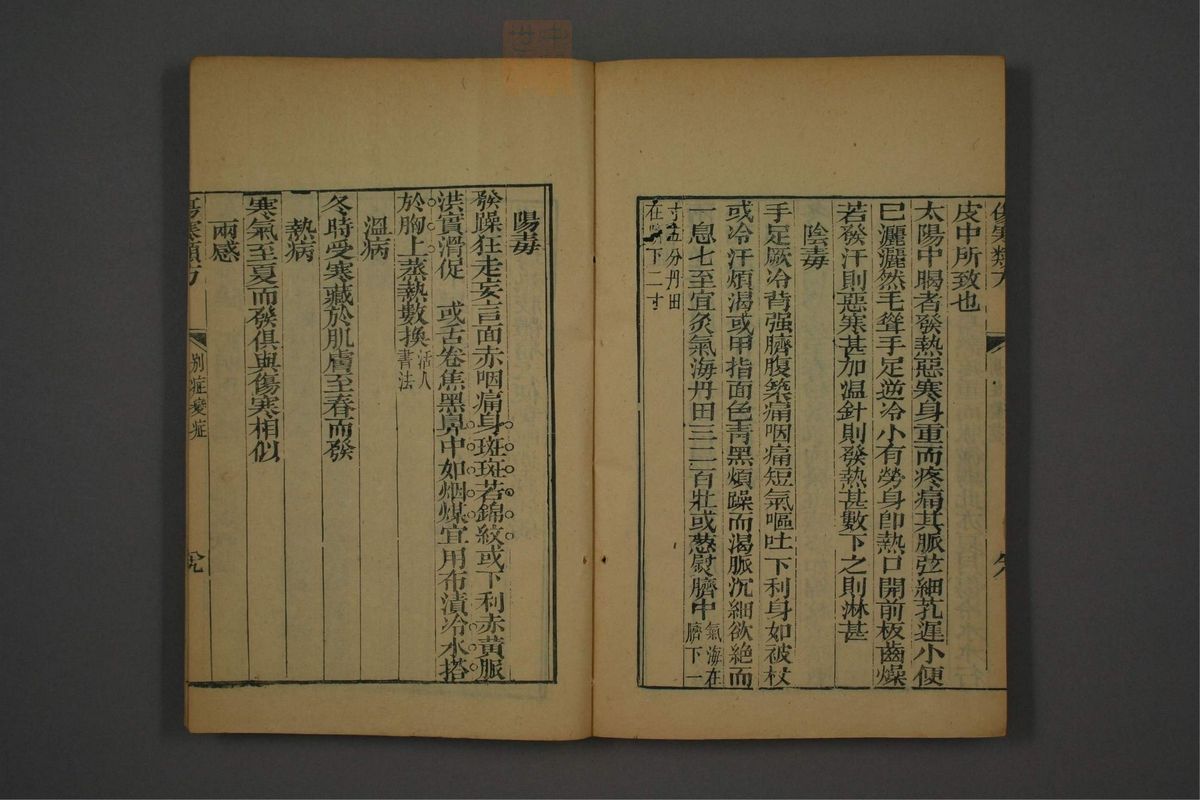 傷寒類方
皮中所致也
太陽中暍者發熱惡寒身重而疼痛其脈弦細芤遲小便
巳灑灑然毛聳手足逆冷小有勞身卽熱口開前板齒燥
若發汗則惡寒甚加温針則發熱甚數下之則淋甚
陰毒
手足厥冷背强臍腹築痛咽痛短氣嘔吐下利身如被杖
或冷汗煩渴或甲指面色靑黑煩躁而渴脈沉細欲絶而
一息七至宜灸氣海丹田三二百壯或葱熨臍中氣海在臍下一
寸五分丹田在臍下二寸
陽毒
發躁狂走妄言面赤咽痛身斑斑若錦紋或下利赤黃脈
洪實滑促 或舌卷焦黑鼻中如烟煤宜用布漬冷水搭
於胸上蒸熱數換活人書法
溫病
冬時受寒藏於肌膚至春而發
熱病
寒氣至夏而發俱與傷寒相似
兩感
傷寒類方
別症變症